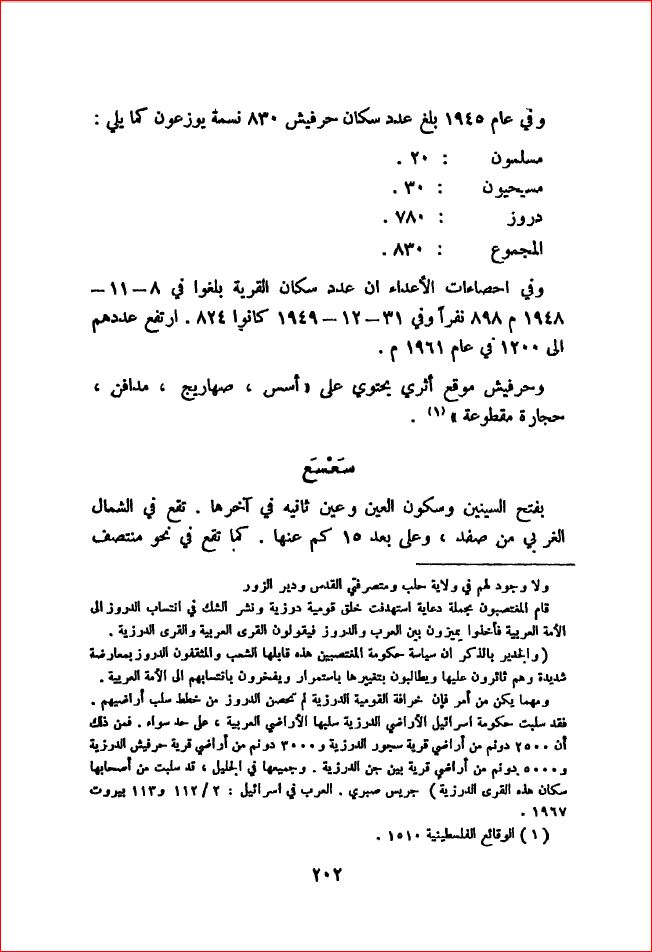 وفي عام ١٩٤٥ بلغ عدد سكان حرفيش ٨٣٠ نسمة يوزعون كما يلي :
مسلمون : ٢٠ .
مسيحيون : ٣٠ .
دروز : ٧٨٠ .
المجموع : ٨٣٠ .
وفي احصاءات الأعداء ان عدد سكان القرية بلغوا في ٨ – ١١ –
١٩٤٨ م ٨٩٨ نفراً وفي ٣١ – ١٢ – ١٩٤٩ كانوا ٨٢٤ . ارتفع عددهم
الى ١٢٠٠ في عام ١٩٦١ م .
وحرفيش موقع أثري يحتوي على « أسس ، صهاريج ، مدافن ،
حجارة مقطوعة » (١) .
سَعْسَع
بفتح السينين وسكون العين وعين ثانيه في آخرها . تقع في الشمال
الغربي من صفد ، وعلى بعد ١٥ كم عنها . كما تقع في نحو منتصف
ولا وجود لهم في ولاية حلب ومتصرفتي القدس ودير الزور
قام المغتصبون بحملة دعاية استهدفت خلق قومية درزية ونشر الشك في انتساب الدروز الى
الأمة العربية فأخذوا يميزون بين العرب والدروز فيقولون القرى العربية والقرى الدرزية .
( والجدير بالذكر ان سياسة حكومة المغتصبين هذه قابلها الشعب والمثقفون الدروز بمعارضة
شديدة وهم ثائرون عليها ويطالبون بتغييرها باستمرار ويفخرون بانتسابهم الى الأمة العربية .
ومهما يكن من أمر فإن خرافة القومية الدرزية لم تحصن الدروز من خطط سلب أراضيهم .
فقد سلبت حكومة اسرائيل الأراضي الدرزية سلبها الأراضي العربية ، على حد سواء . فمن ذلك
أن ٢٥٠٠ دونم من أراضي قرية سجور الدرزية و ٣٠٠٠ دونم من أراضي قرية حرفيش الدرزية
و ٥٠٠٠ دونم من أراضي قرية بين جن الدرزية . وجميعها في الجليل ، قد سلبت من أصحابها
سكان هذه القرى الدرزية ) جريس صبري . العرب في اسرائيل : ٢ / ١١٢ و ١١٣ بيروت
١٩٦٧ .
( ١ ) الوقائع الفلسطينية ١٥١٠ .
٢٠٢